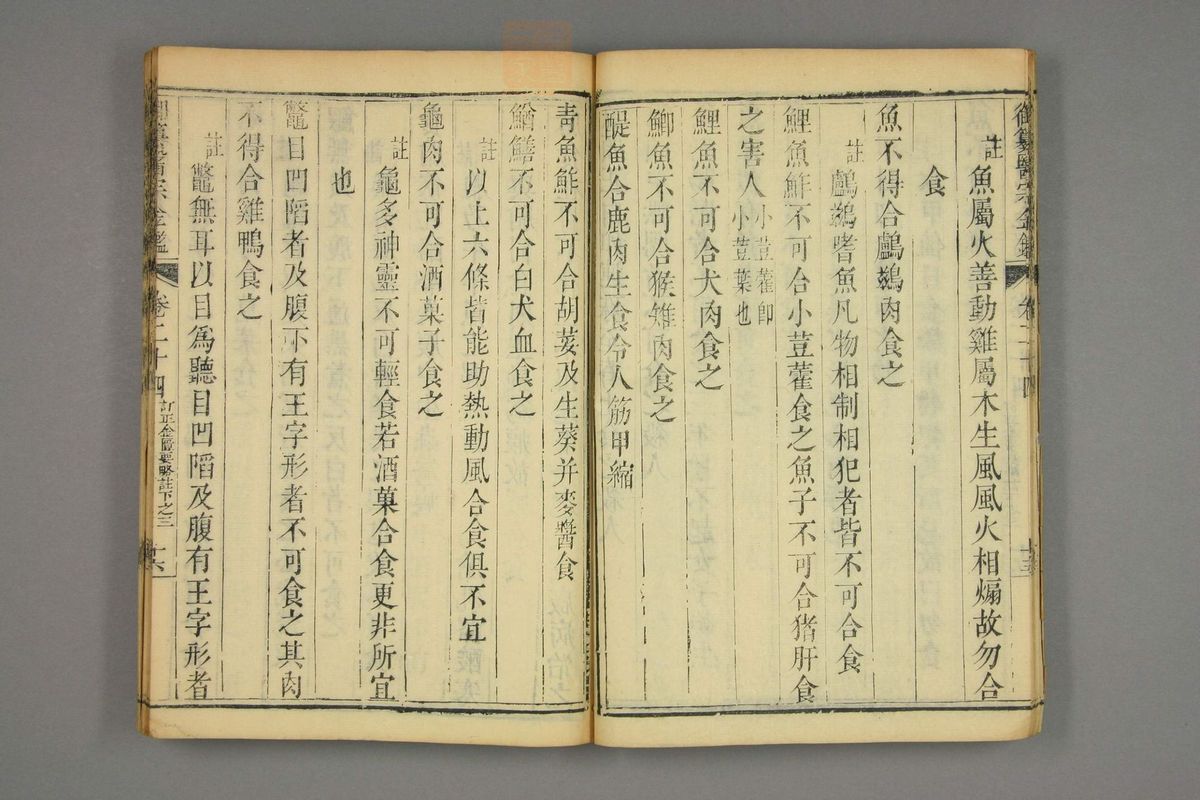 御纂醫宗金鑑 卷二十四
註 魚屬火善動雞屬木生風風火相煽故勿合
食
魚不得合鸕鷀肉食之
註 鸕鷀嗜魚凡物相制相犯者皆不可合食
鯉魚鮓不可合小荳藿食之魚子不可合猪肝食
之害人 小荳藿即小荳葉也
鯉魚不可合犬肉食之
鯽魚不可合猴雉肉食之
鯷魚合鹿肉生食令人筋甲縮
青魚鮓不可合胡荽及生葵并麥醬食
鰌鱔不可合白犬血食之
註 以上六條皆能助熱動風合食俱不宜
龜肉不可合酒菓子食之
註 龜多神靈不可輕食若酒菓合食更非所宜
也
鼈目凹陷者及腹下有王字形者不可食之其肉
不得合雞鴨食之
註 鼈無耳以目爲聽目凹陷及腹有王字形者
醫宗金鑑 卷二十四 訂正金匱要略註下之三 十六